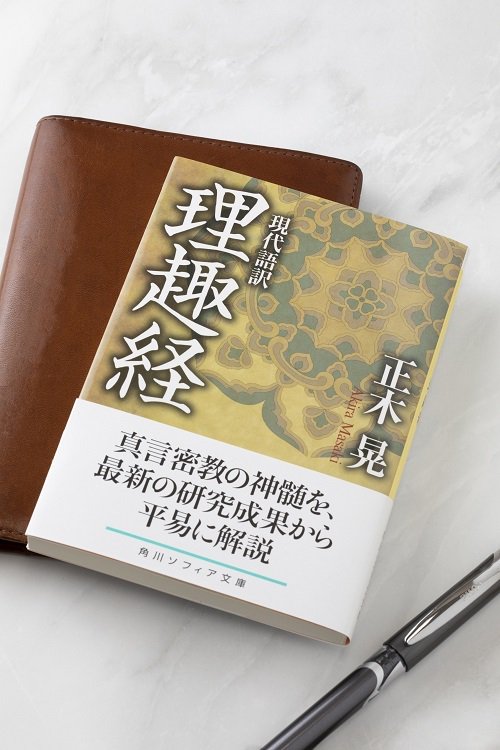 現代語訳
理趣経
正木 晃
Akira Masaki
真言密教の神髄を、
最新の研究成果から
平易に解説
角川ソフィア文庫